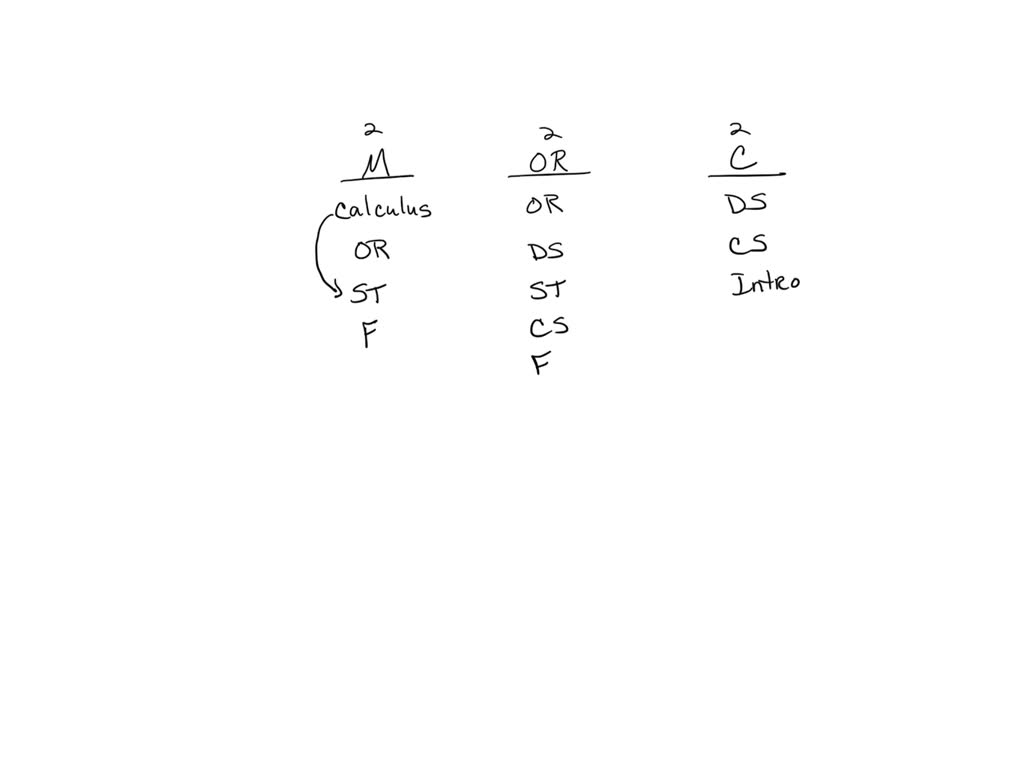 2 2 2
M OR C
Calculus OR DS
OR DS CS
ST ST Intro
F CS
F